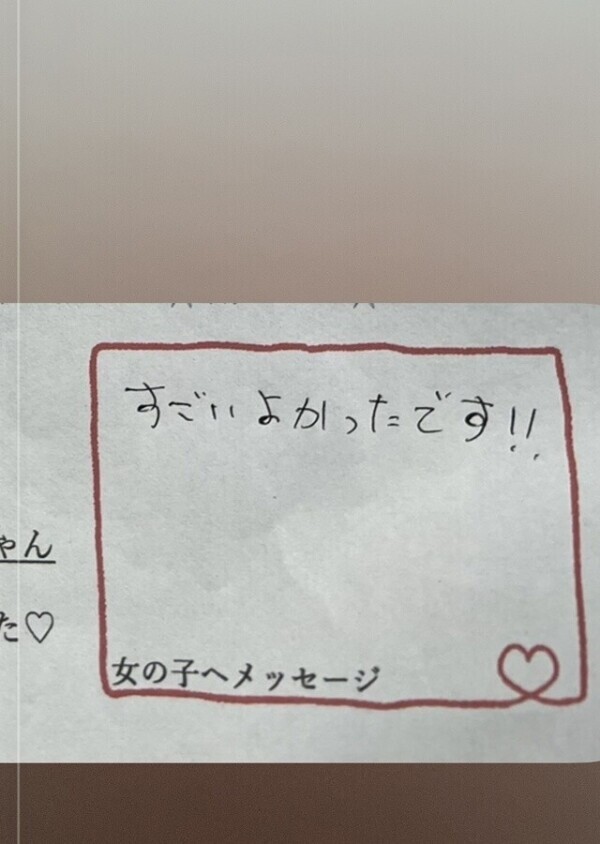 すごいよかったです!!
ゃん
た♡
女の子へメッセージ